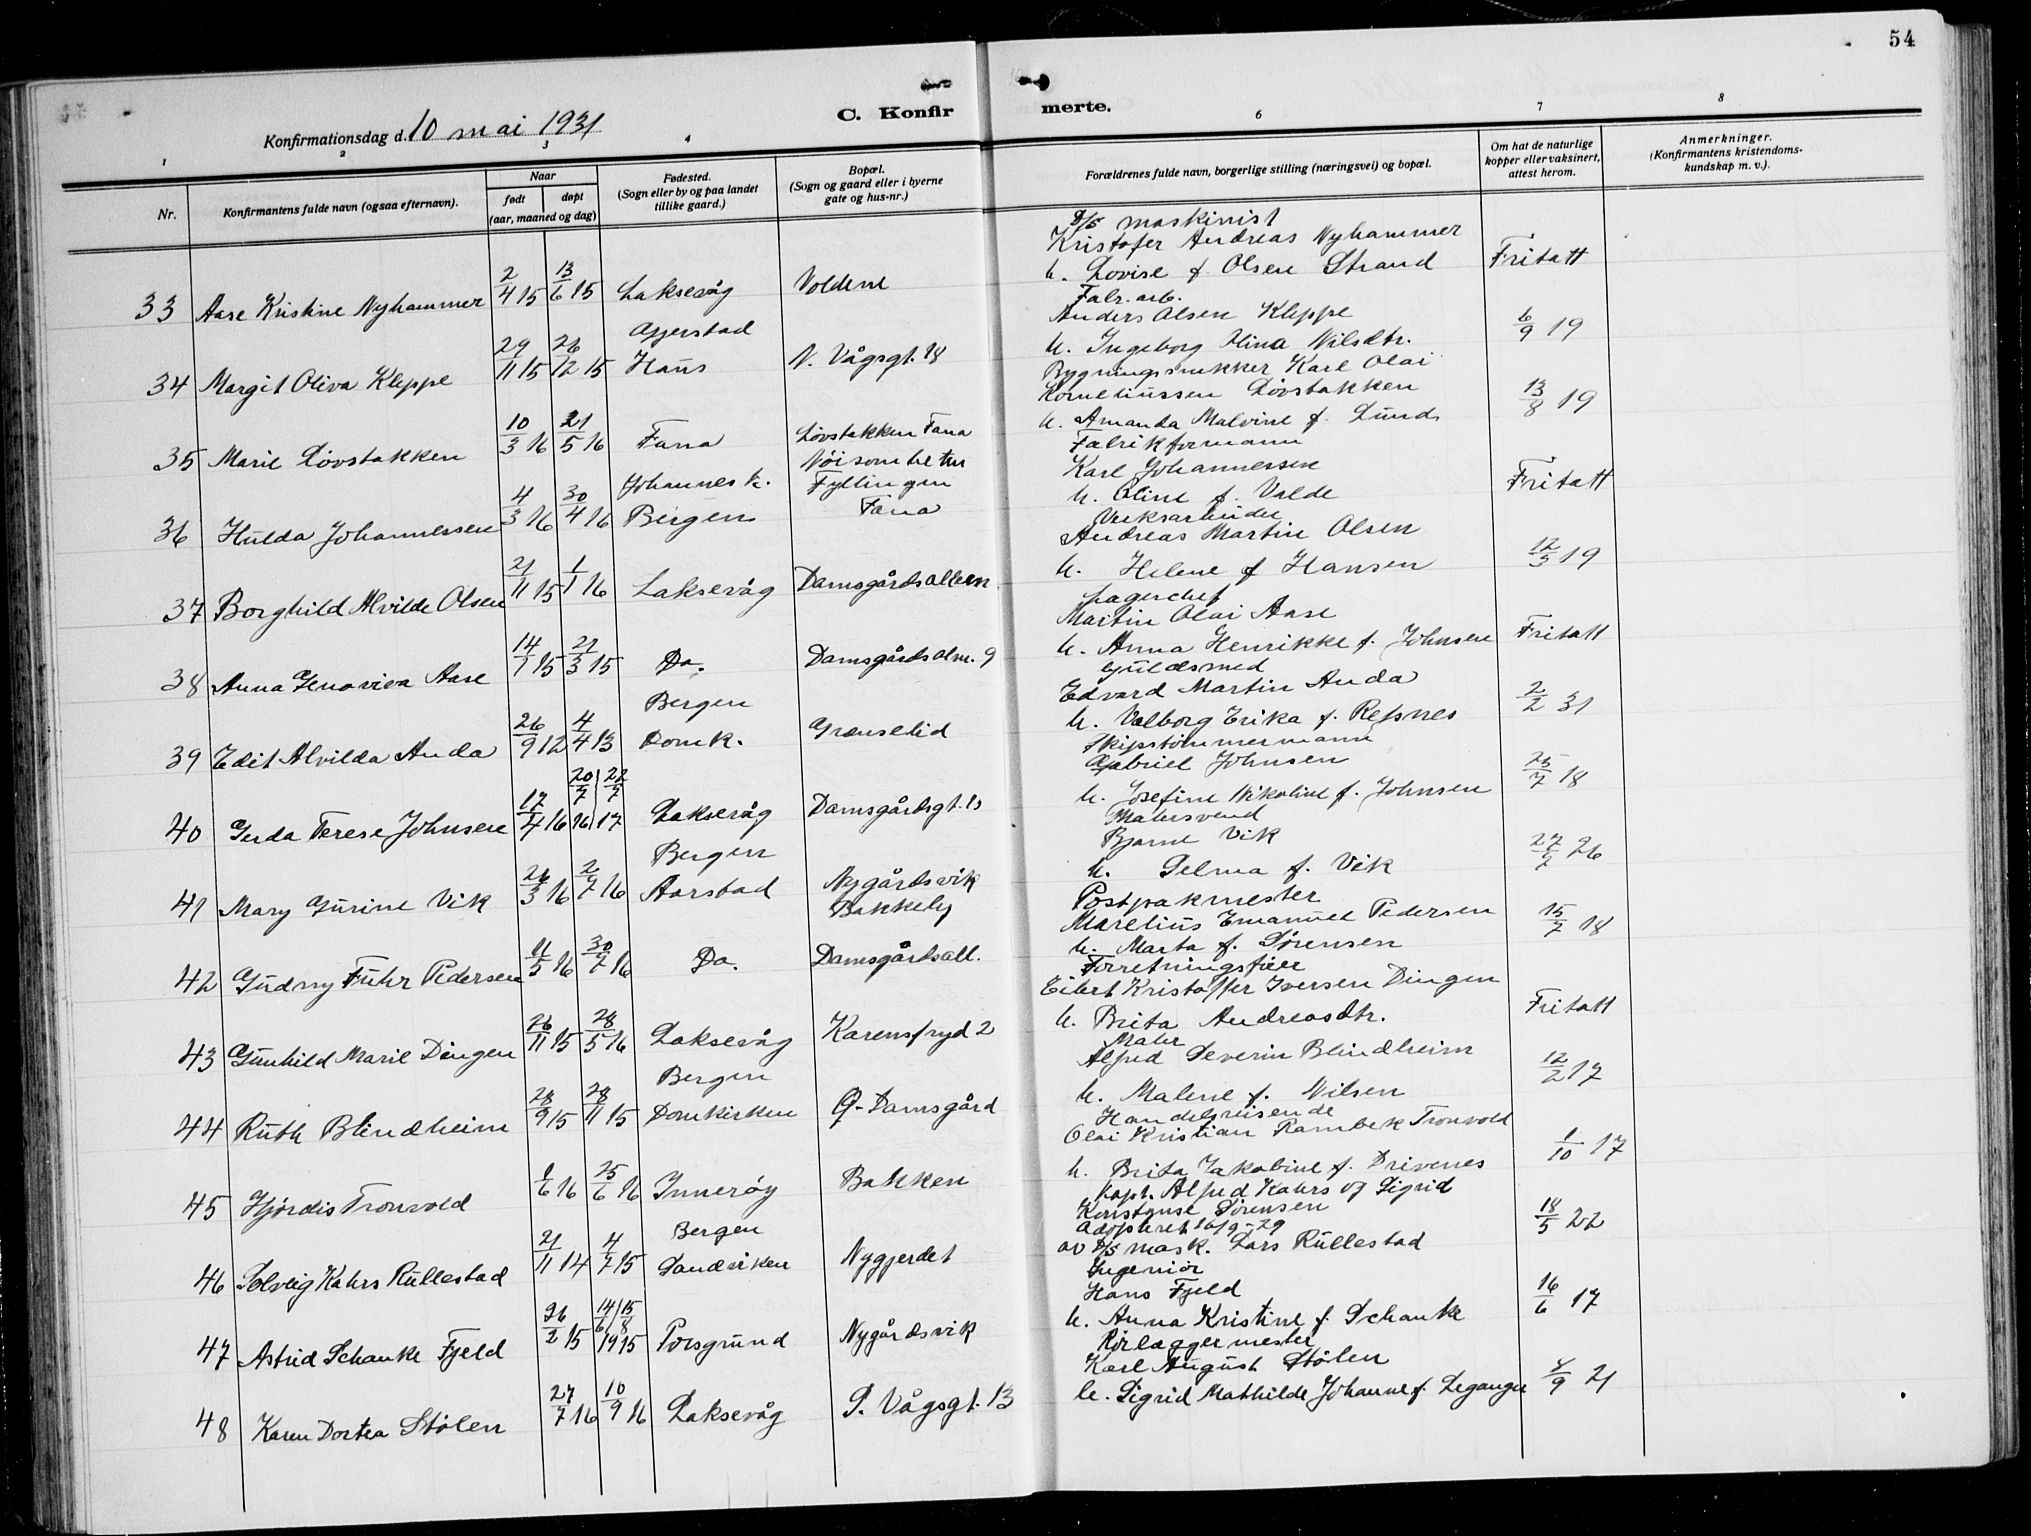 54
C. Konfirmerte.
Konfirmationsdag d. 10 mai 1931
1 2 3 4 6 7 8
Nr.
Konfirmantens fulde navn (ogsaa efternavn).
Naar
født døpt
(aar, maaned og dag)
Fødested.
(Sogn eller by og paa landet
tillike gaard.)
Bopæl.
(Sogn og gaard eller i byerne
gate og hus-nr.)
Forældrenes fulde navn, borgerlige stilling (næringsvei) og bopæl.
Om hat de naturlige
kopper eller vaksinert,
attest herom.
Anmerkninger.
(Konfirmantens kristendoms-
kundskap m. v.).
33 Aase Kristine Nyhammer 2/4 15 13/6 15 Laksevåg Voldene
D/S maskinist
Kristofer Andreas Nyhammer
h. Lovise f. Olsen Strand Fritatt
34 Margit Oliva Kleppe 29/11 15 26/12 15 Gjerstad
Haus N. Vågsgt. 18
Fabr. arb.
Anders Olsen Kleppe
h. Ingeborg Olina Nilsdtr. 6/9 19
35 Marie Løvstakken 10/3 16 21/5 16 Fana Løvstakken Fana
Bygningssnekker Karl Olai
Korneliussen Løvstakken
h. Amanda Malvine f. Lunds 13/8 19
36 Hulda Johannessen 4/3 16 30/4 16 Johannesk.
Bergen
Fyllingen
Fana
Fabrikformann
Karl Johannessen
h. Oline f. Valde Fritatt
37 Borghild Alvilde Olsen 21/11 15 1/1 16 Laksevåg Damsgårdsalleen
Verksarbeider
Andreas Martin Olsen
h. Helene f. Hansen 12/3 19
38 Anna Genoviva Aase 14/1 15 21/3 15 Do. Damsgårdsalm. 9
Lagerchef
Martin Olai Aase
h. Anna Henrikke f. Johnsen Fritatt
39 Edit Alvilda Anda 26/9 12 4/4 13 Bergen
Domk. Grænselid
Guldsmed
Edvard Martin Anda
h. Valborg Erika f. Refsnes 2/2 31
40 Gerda Terese Johnsen 17/4 16 20/7 16 | 22/7 17 Laksevåg Damsgårdsgt. 15
Skipstømmermann
Gabriel Johnsen
h. Josefine Nikoline f. Johnsen 25/7 18
41 Mary Gurine Vik 26/3 16 2/7 16 Bergen
Aarstad Nygårdsvik
Bakkely
Malersvend
Bjarne Vik
h. Selma f. Vik 27/2 26
42 Gudny Fuhr Pedersen 11/5 16 30/7 16 Do. Damsgårdsall.
Postpakmester
Marelius Emanuel Pedersen
h. Marta f. Sørensen 15/7 18
43 Gunhild Marie Dingen 26/11 15 28/5 16 Laksevåg Karensfryd 2
Forretningsfører
Eilert Kristoffer Iversen Dingen
h. Brita Andreasdtr. Fritatt
44 Ruth Blindheim 28/9 15 28/11 15 Bergen
Domkirken G. Damsgård
Maler
Alfred Severin Blindheim
h. Malene f. Nilsen 12/2 17
45 Hjørdis Tronvold 1/6 16 25/6 16 Innerøy Bakken
Handelsreisende
Olai Kristian Rambek Tronvold
h. Brita Jakobine f. Drivenes 1/10 17
46 Solveig Kahrs Rullestad 21/11 14 4/7 15 Bergen
Sandviken Nygjerdet
kapt. Alfred Kahrs og Sigrid
Konstanse Sørensen
adopteret 26/9-29
av D/S mask. Lars Rullestad 18/5 22
47 Astrid Schanke Fjeld 26/2 15 14/6 | 15/8 1915 Porsgrund Nygårdsvik
Ingeniør
Hans Fjeld
h. Anna Kristine f. Schanke 16/6 17
48 Karen Dortea Stølen 27/7 16 10/9 16 Laksevåg S. Vågsgt. 13
Rørlæggermester
Karl August Stølen
h. Sigrid Mathilde Johanne f. Leganger 4/9 21